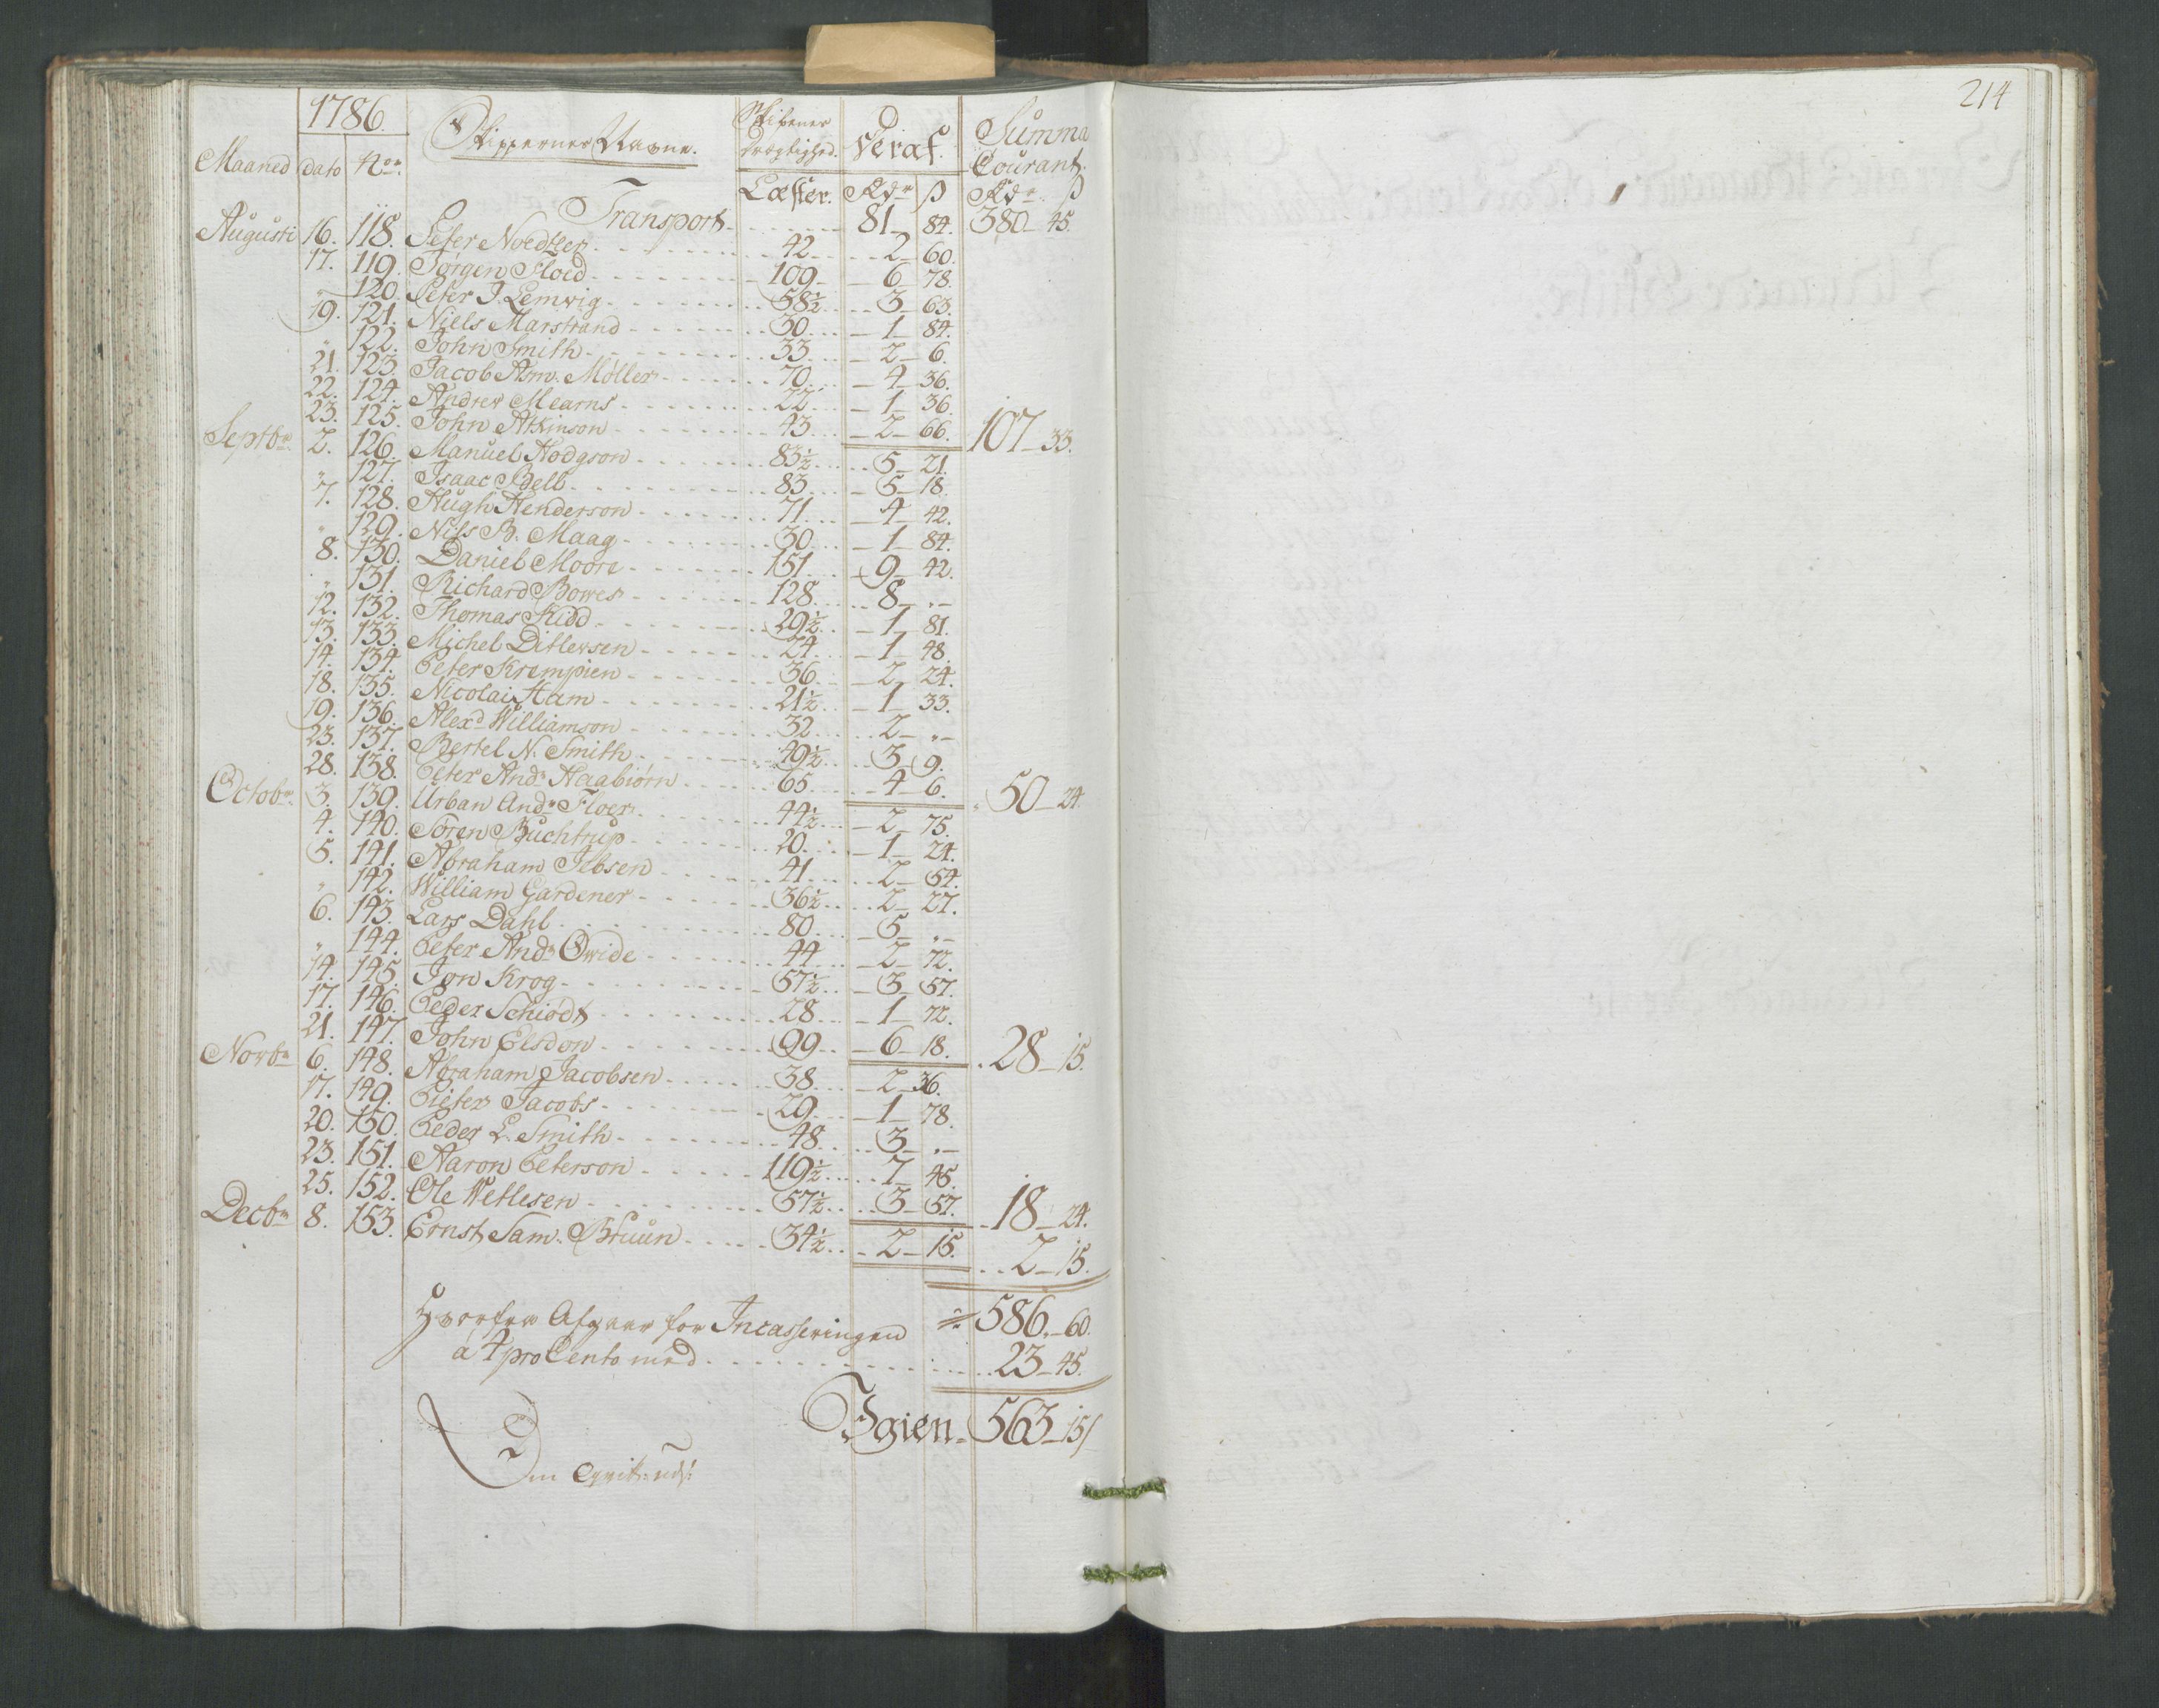 214
1786. Skippernes Navne. Skibenes Veraf. Summa
Maaned dato No. drægtighed. Courant.
Læster. Rdr ß Rdr ß
Transport 81 84. 380 45.
Augusti 16. 118. Peter Noedtzer 42 2 60.
17. 119. Jørgen Floed 109 6 78.
" 120. Peter J. Lemvig 58½ 3 63.
19. 121. Niels Marstrand 30 1 84.
" 122. John Smith 33 2 6.
21. 123. Jacob Asm. Møller 70 4 36.
22. 124. Andrev Mearns 22 1 36.
23. 125. John Atkinson 43 2 66. 107 33.
Septbr. 2. 126. Manuel Hodgson 83½ 5 21.
" 127. Isaac Bell 83 5 18.
7. 128. Hugh Henderson 71 4 42.
" 129. Nils B. Maag 30 1 84.
8. 130. Daniel Moore 151 9 42.
" 131. Richard Bowes 128 8 "
12. 132. Thomas Kidd 29½ 1 81.
13. 133. Michel Ditlevsen 24 1 48.
14. 134. Peter Krempien 36 2 24.
18. 135. Nicolai Ham 21½ 1 33.
19. 136. Alexd Williamson 32 2 "
23. 137. Bertel N. Smith 49½ 3 9.
28. 138. Peter Andr Haabiørn 65 4 6. 50 24.
Octobr. 3. 139. Urban Andr Floer 44½ 2 75.
4. 140. Søren Buchtrup 20 1 24.
5. 141. Abraham Jebsen 41 2 54.
" 142. William Gardener 36½ 2 27.
6. 143. Lars Dahl 80 5 "
" 144. Peter Andr Qwide 44 2 72.
14. 145. Jøn Krog 57½ 3 57.
17. 146. Peder Schiødt 28 1 72.
21. 147. John Elsdon 99 6 18. 28 15.
Novbr 6. 148. Abraham Jacobsen 38 2 36.
17. 149. Pieter Jacobs 29 1 78.
20. 150. Peder L. Smith 48 3 "
23. 151. Aaron Peterson 119½ 7 45.
25. 152. Ole Vetlesen 57½ 3 57. 18 24.
Decbr 8. 153. Ernst Sam. Bruun 34½ 2 15. 2 15.
Hvorfra Afgaar for Incasseringen 586 60.
a 4 pro Cento med 23 45.
Igien 563 15/